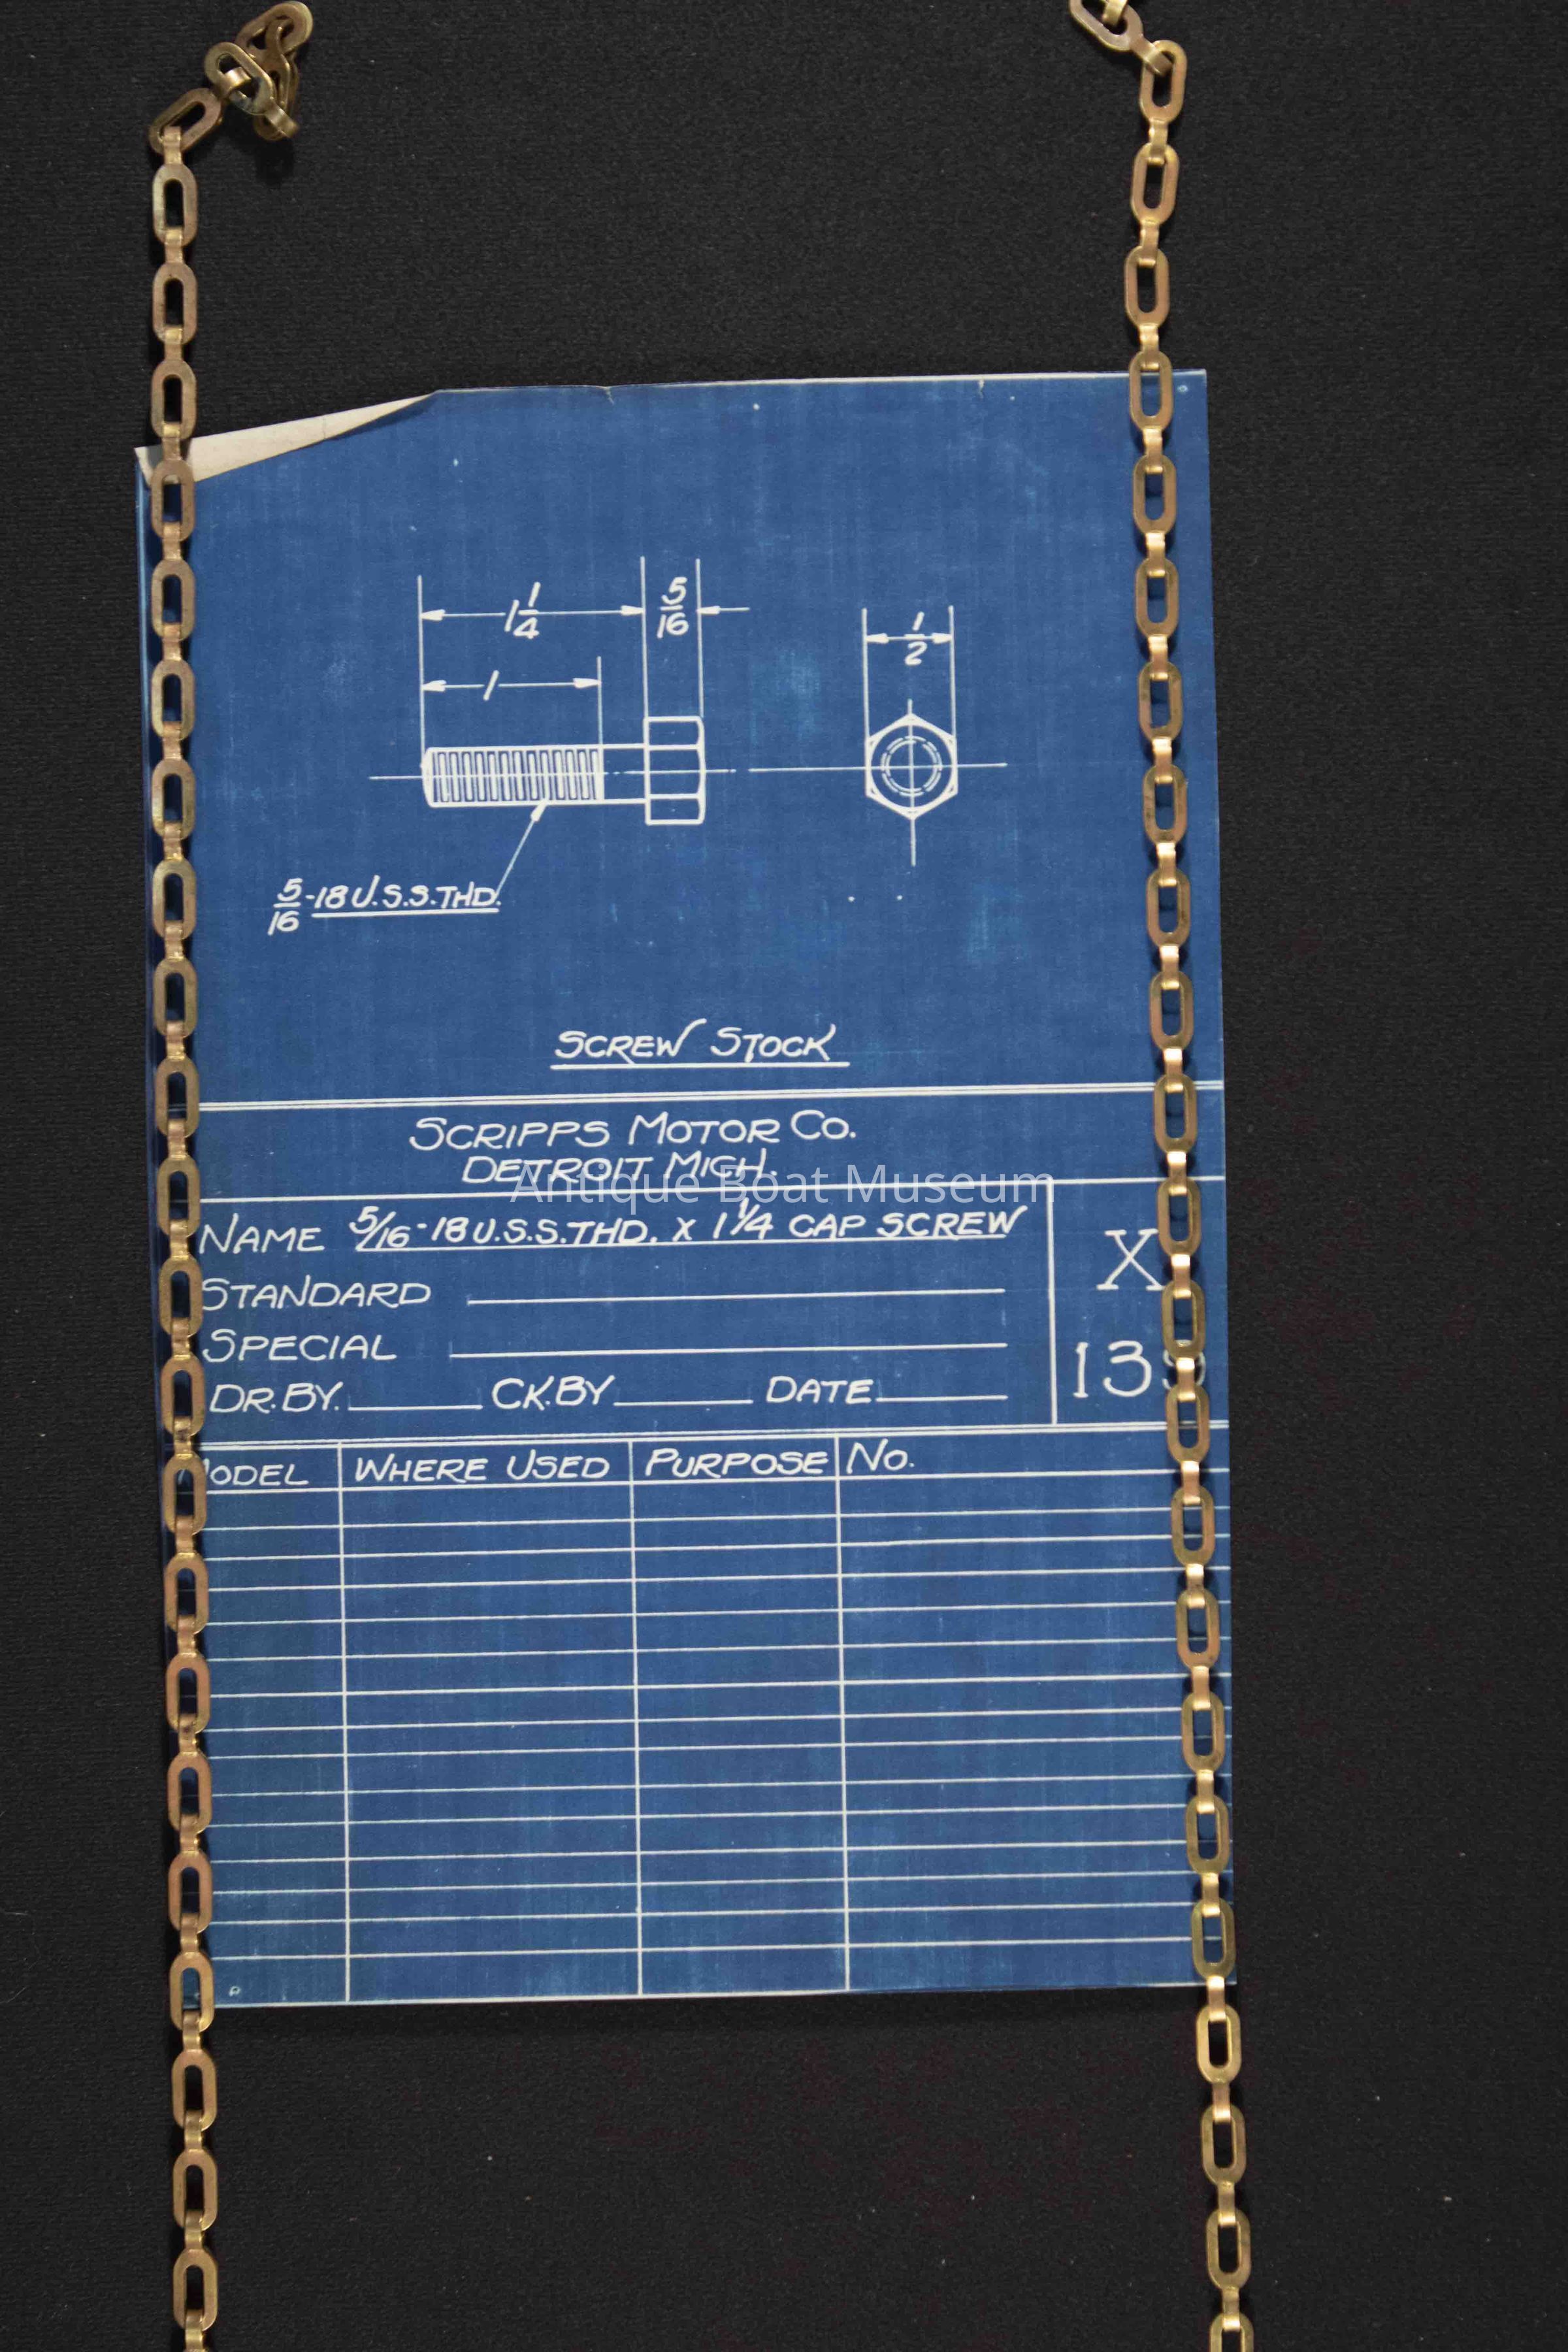 1 1/4
5/16
1/2
1
5/16-18 U.S.S. THD.
SCREW STOCK
SCRIPPS MOTOR CO.
DETROIT MICH.
Antique Boat Museum
NAME 5/16-18 U.S.S. THD. X 1 1/4 CAP SCREW
X
STANDARD
SPECIAL
DR. BY. CK. BY DATE
WHERE USED PURPOSE NO.